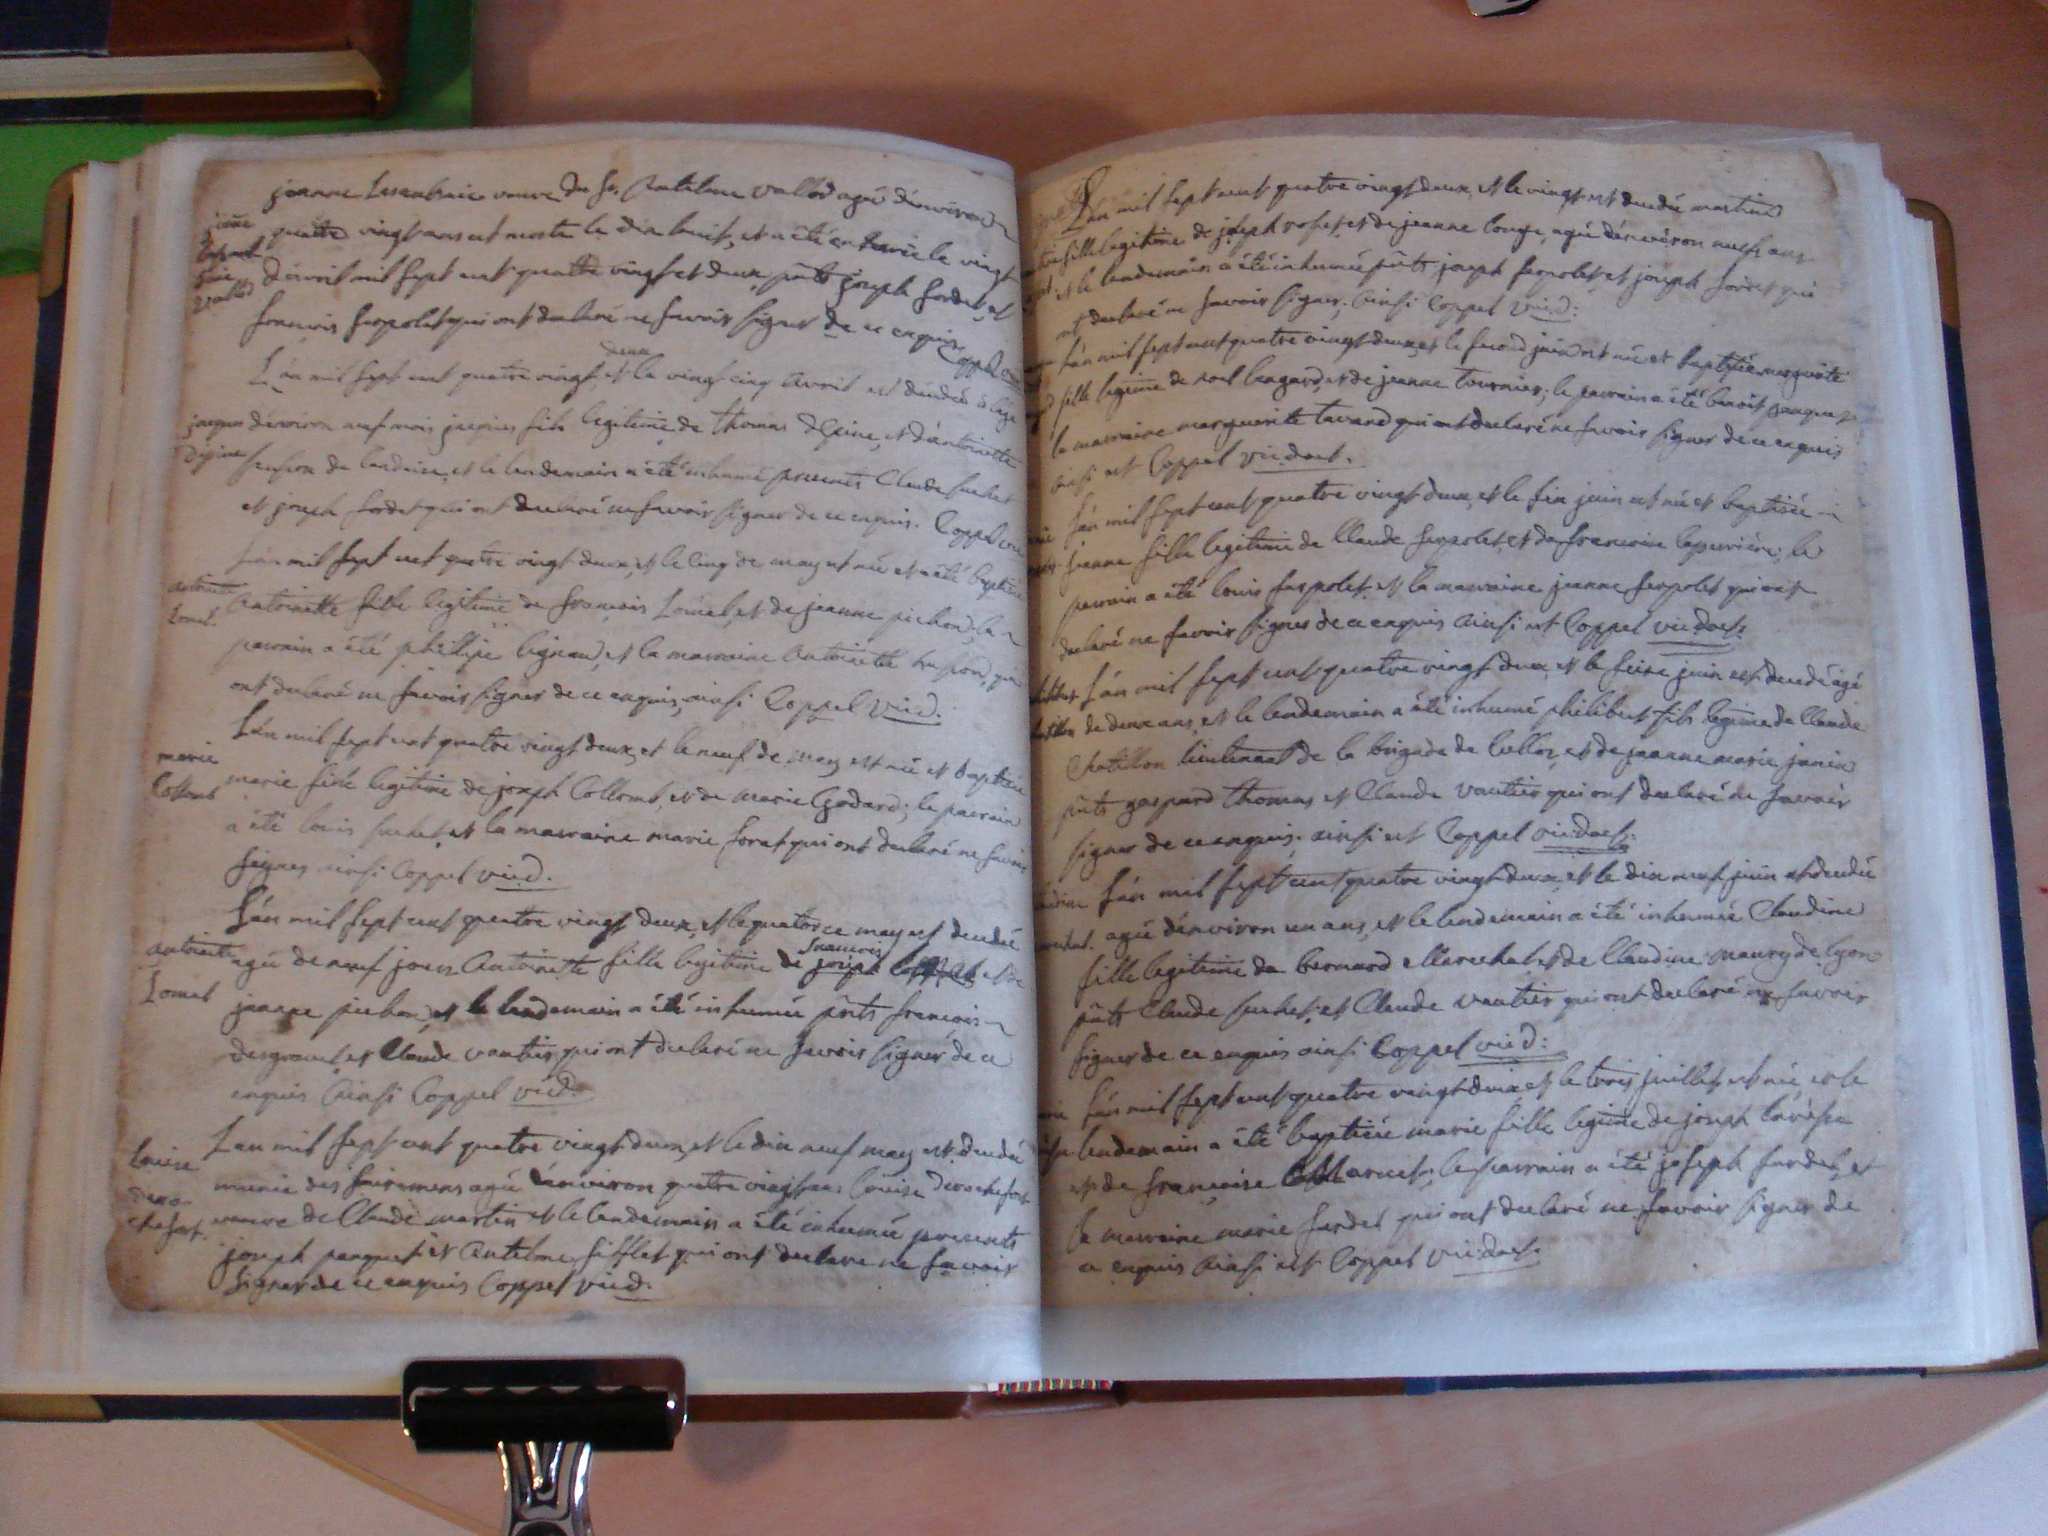 jeanne veuve du Sr. vallod agé d'environ
jeanne
quatre vingt ans est morte le dix huit, et a été enterrée le vingt
vallod
d'avril mil sept cent quatre vingt et deux pnts joseph fordet, et
françois serpolet qui ont declaré ne savoir signer de ce enquis
Coppel
deux
L'an mil sept cent quatre vingt et le vingt cinq avril est decedé à l'age
jaques
d'environ neuf mois jacques fils legitime de thomas Depine, et d'antoinette
Depine
et le lendemain a été inhumé presents Claude suchet
et joseph fordet qui ont declaré ne savoir signer de ce enquis. Coppel
L'an mil sept cent quatre vingt deux, et le cinq de may est née et a été baptisée
antoinette
Antoinette fille legitime de françois Lomel, et de jeanne pichon, le
Lomel
parrain a été phillipe et la marraine Antoinette qui
ont declaré ne savoir signer de ce enquis, ainsi Coppel vicd.
L'an mil sept cent quatre vingt deux, et le neuf de may est née et baptisée
marie
marie fille legitime de joseph Collomb, et de marie Godard; le parrain
Collomb
a été louis suchet, et la marraine marie qui ont declaré ne savoir
signer ainsi Coppel vicd.
L'an mil sept cent quatre vingt deux, et le quatorce may est decedée
françois
antoinette
agée de neuf jours Antoinette fille legitime de joseph et de
Lomel
jeanne pichon, et le lendemain a été inhumée pnts françois
desgranges, et Claude vautier qui ont declaré ne savoir signer de ce
enquis Ainsi Coppel vicd.
L'an mil sept cent quatre vingt deux, et le dix neuf may est decedée
Louise
munie des sacremens agée d'environ quatre vingt ans Louise Derochefort
Dero
chefort
veuve de Claude martin et le lendemain a été inhumée presents
joseph panquet et Antelme qui ont declare ne savoir
signer de ce enquis Coppel vicd.
L'an mil sept cent quatre vingt deux, et le vingt est decedée martine
fille legitime de joseph et de jeanne agée d'environ neuf ans
et le lendemain a été inhumée pnts joseph serpolet et joseph fordet qui
ont declaré ne savoir signer, Ainsi Coppel vicd.
L'an mil sept cent quatre vingt deux, et le second juin est née et baptisée marguerite
fille legitime de noel et de jeanne tournier; le parrain a été benoit
la marraine marguerite qui ont declaré ne savoir signer de ce enquis
ainsi est Coppel vic:dact.
L'an mil sept cent quatre vingt deux, et le six juin est née et baptisée
jeanne fille legitime de Claude serpolet, et de francoise le
parrain a été louis serpolet, et la marraine jeanne serpolet qui ont
declaré ne savoir signer de ce enquis Ainsi est Coppel vic:dact.
L'an mil sept cent quatre vingt deux, et le seize juin est decedé agé
de deux ans, et le lendemain a été inhumé philibert fils legitime de Claude
Chatillon lieutenant de la brigade de Culloz, et de jeanne marie janin
pnts gaspard thomas et Claude vautier qui ont declaré de savoir
signer de ce enquis. ainsi est Coppel vic:dact.
L'an mil sept cent quatre vingt deux, et le dix neuf juin est decedée
agée d'environ un ans, et le lendemain a été inhumée Claudine
fille legitime de bernard Marechal et de Claudine maury de lyon
pnts Claude suchet, et Claude vautier qui ont declaré ne savoir
signer de ce enquis ainsi Coppel vicd:
L'an mil sept cent quatre vingt deux, et le trois juillet est née et le
lendemain a été baptisée marie fille legitime de joseph
et de françoise le parrain a été joseph fardel, et
la marraine marie fardel qui ont declaré ne savoir signer de
ce enquis Ainsi est Coppel vic:dact.